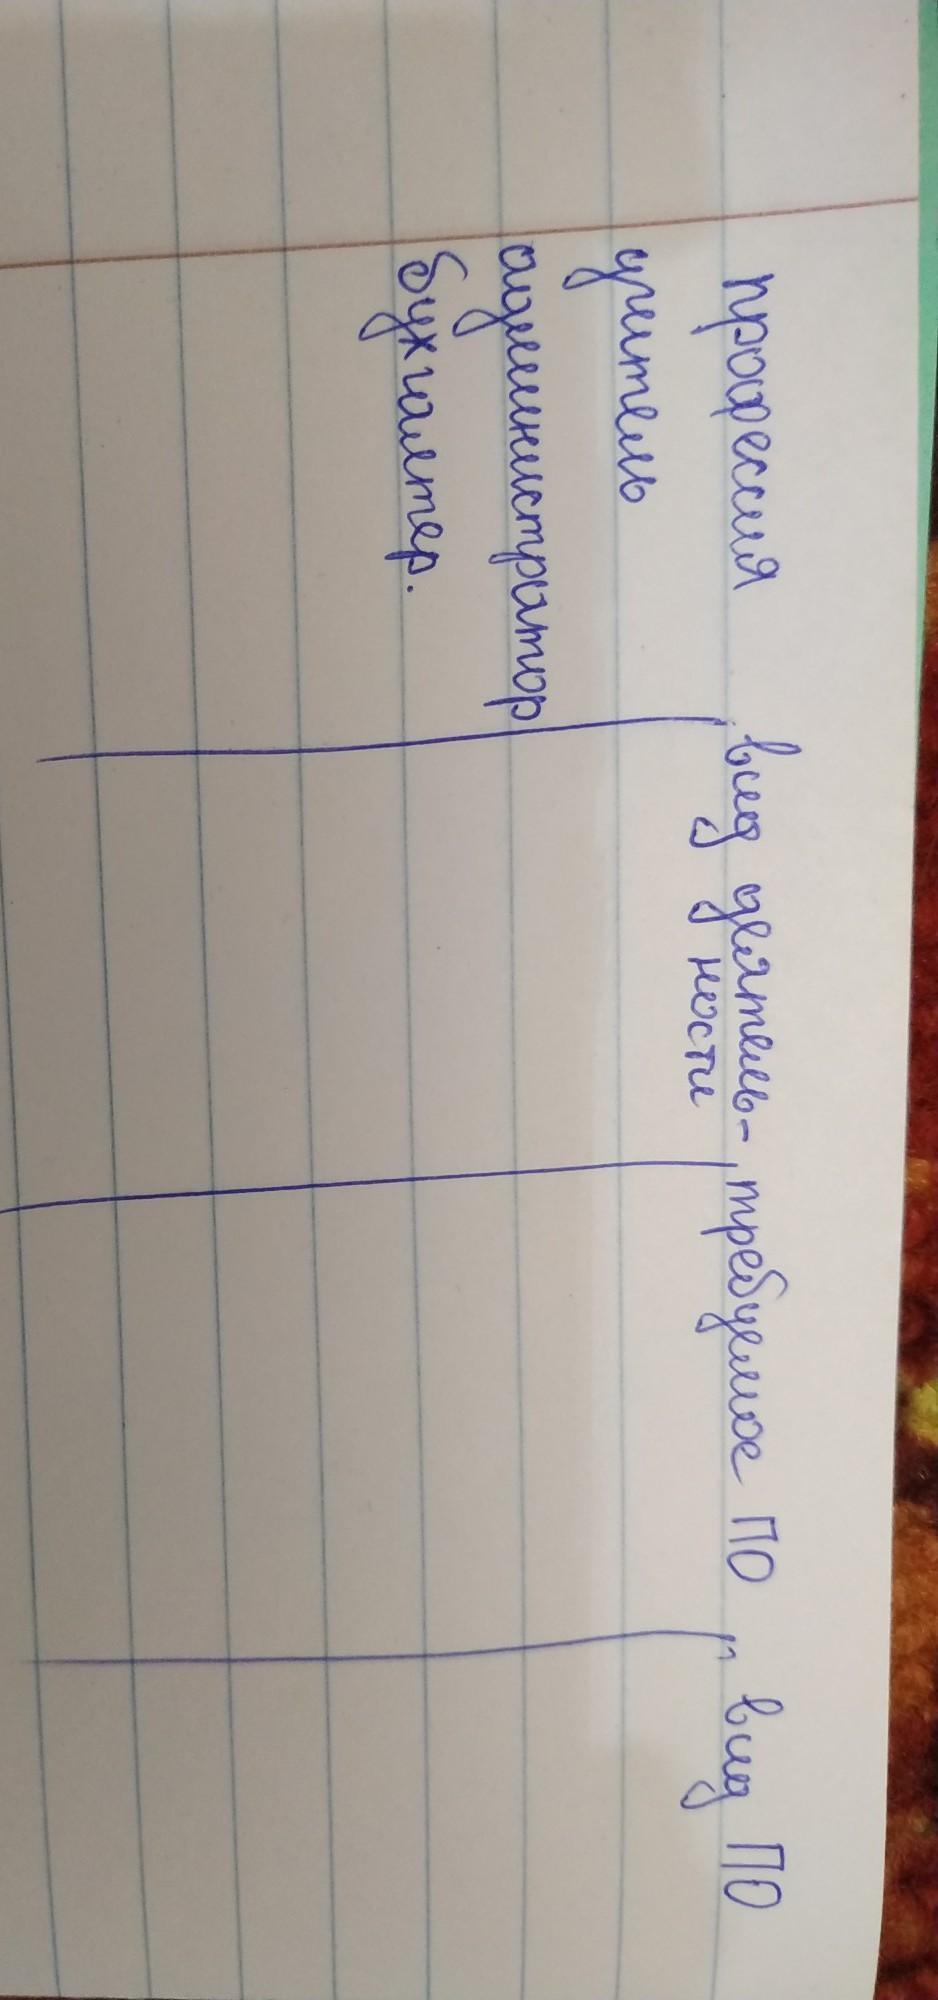 профессия вид деятель- требуемое ПО вид ПО
ности
учитель
администратор
бухгалтер.